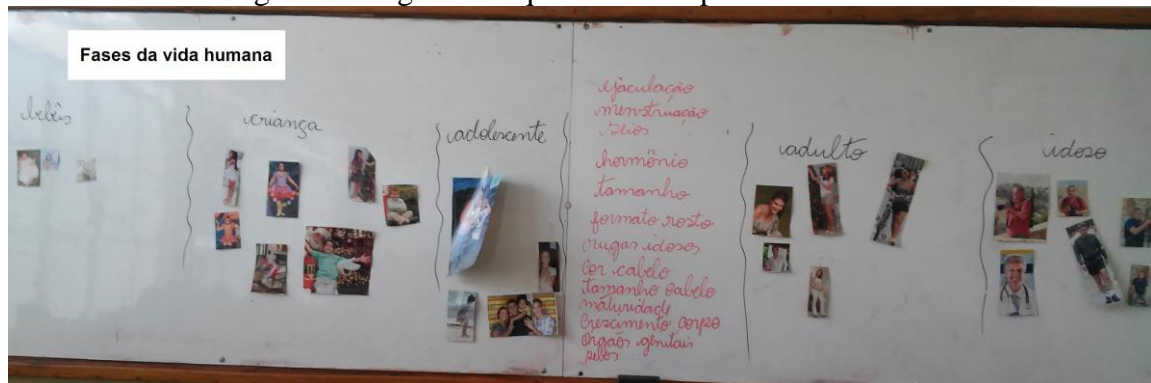 Fases da vida humana
bebês
criança
adolescente
ejaculação
menstruação
seios
hormônio
tamanho
formato rosto
rugas idosos
cor cabelo
tamanho cabelo
maturidade
crescimento corpo
órgãos genitais
pelos
adulto
idoso